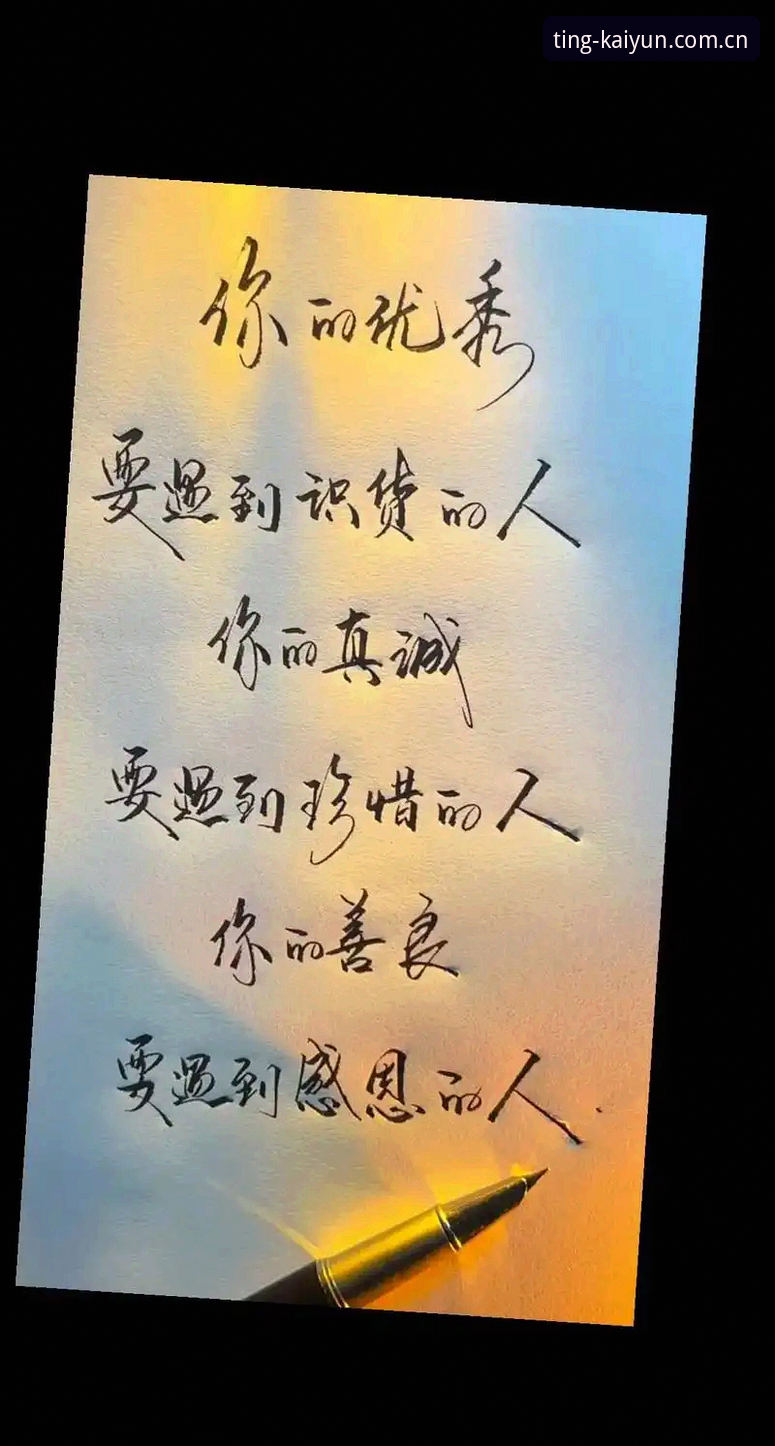 ting-kaiyun.com.cn
你的优秀
要遇到识货的人
你的真诚
要遇到珍惜的人
你的善良
要遇到感恩的人.